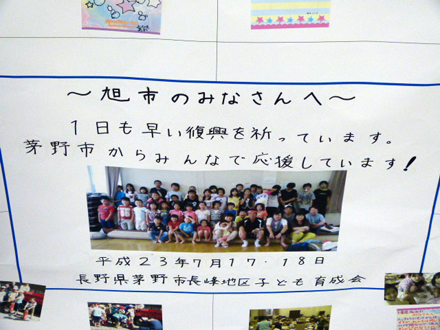 〜旭市のみなさんへ〜
1日も早い復興を祈っています。
茅野市からみんなで応援しています!
平成23年7月17・18日
長野県茅野市長峰地区子ども育成会